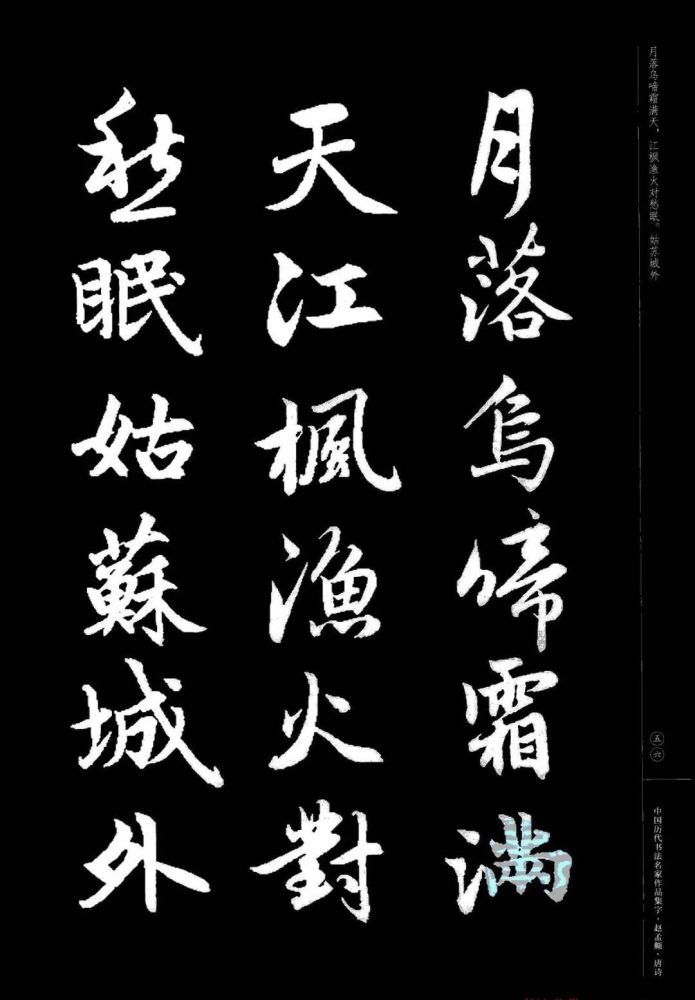 月落烏啼霜满
天江楓漁火對
愁眠姑蘇城外
月落乌啼霜满天，江枫渔火对愁眠。姑苏城外
五六
中国历代书法名家作品集字·赵孟頫·唐诗